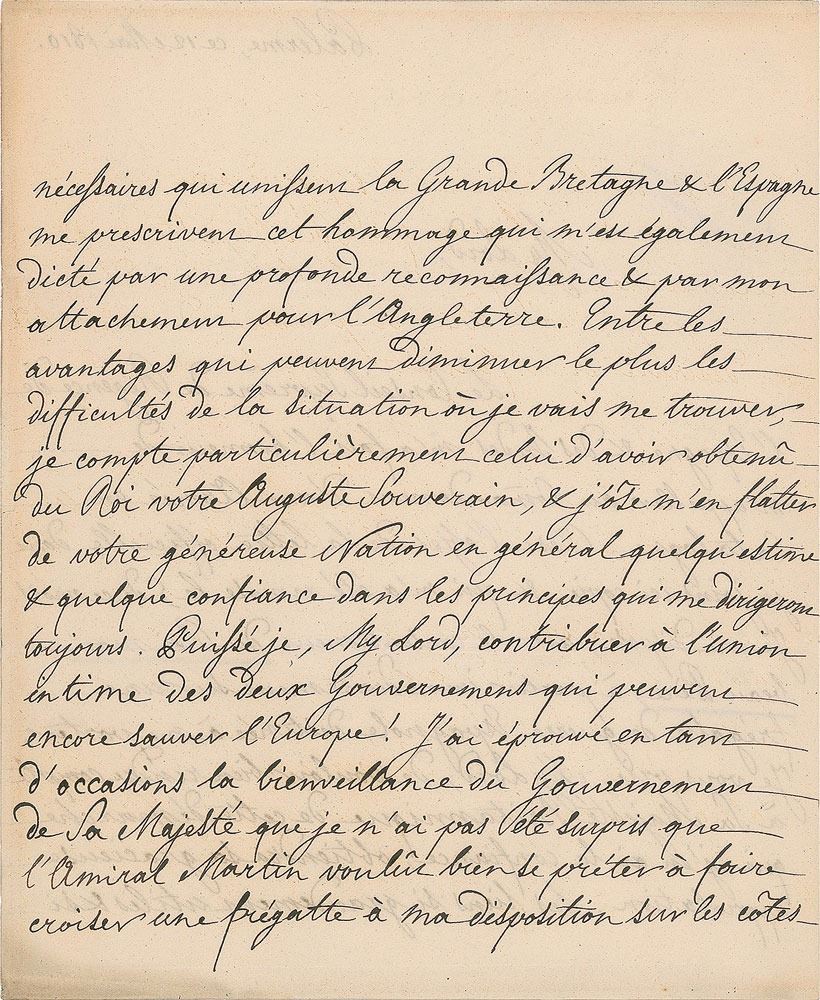 nécessaires qui unissent la Grande Bretagne & l'Espagne
me prescrivent cet hommage qui m'est également
dicté par une profonde reconnaissance & par mon
attachement pour l'Angleterre. Entre les
avantages qui peuvent diminuer le plus les
difficultés de la situation où je vais me trouver,
je compte particulièrement celui d'avoir obtenû
du Roi votre Auguste Souverain, & j'ôse m'en flatter
de votre généreuse Nation en général quelqu'estime
& quelque confiance dans les principes qui me dirigeront
toujours. Puissé je, My Lord, contribuer à l'union
intime des deux Gouvernemens qui peuvent
encore sauver l'Europe! J'ai éprouvé en tant
d'occasions la bienveillance du Gouvernement
de Sa Majesté que je n'ai pas été surpris que
l'Amiral Martin voulût bien se prêter à faire
croiser une frégatte à ma disposition sur les côtes